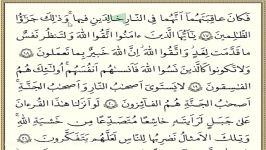 فَكَانَ عَاقِبَتَهُمَا أَنَّهُمَا فِي النَّارِ خَالِدَيْنِ فِيهَا وَذَٰلِكَ جَزَاؤُا
الظَّالِمِينَ ۝ يَا أَيُّهَا الَّذِينَ ءَامَنُوا اتَّقُوا اللَّهَ وَلْتَنظُرْ نَفْسٌ
مَّا قَدَّمَتْ لِغَدٍ وَاتَّقُوا اللَّهَ إِنَّ اللَّهَ خَبِيرٌ بِمَا تَعْمَلُونَ
وَلَا تَكُونُوا كَالَّذِينَ نَسُوا اللَّهَ فَأَنسَاهُمْ أَنفُسَهُمْ أُولَٰئِكَ هُمُ
الْفَاسِقُونَ ۝ لَا يَسْتَوِي أَصْحَابُ النَّارِ وَأَصْحَابُ الْجَنَّةِ
أَصْحَابُ الْجَنَّةِ هُمُ الْفَائِزُونَ ۝ لَوْ أَنزَلْنَا هَٰذَا الْقُرْءَانَ
عَلَىٰ جَبَلٍ لَّرَأَيْتَهُ خَاشِعًا مُّتَصَدِّعًا مِّنْ خَشْيَةِ اللَّهِ
وَتِلْكَ الْأَمْثَالُ نَضْرِبُهَا لِلنَّاسِ لَعَلَّهُمْ يَتَفَكَّرُونَ